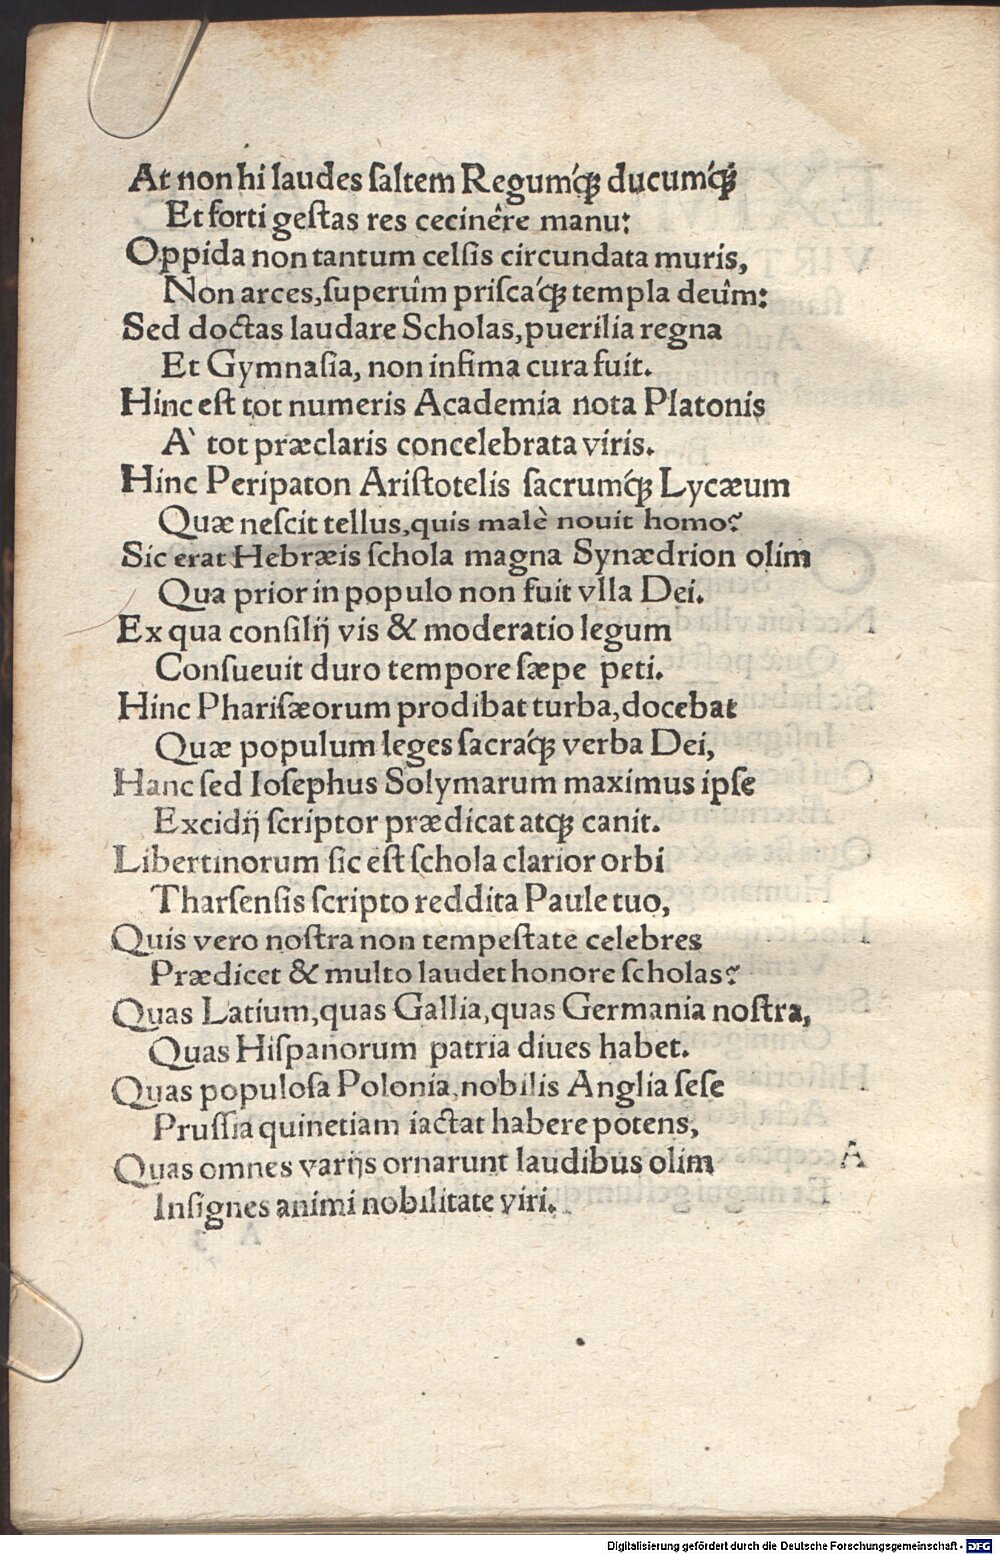 At non hi laudes ſaltem Regumq́ꝫ ducumq́ꝫ
Et forti geſtas res cecinêre manu:
Oppida non tantum celſis circundata muris,
Non arces, ſuperûm priſcaq́ꝫ templa deûm:
Sed doctas laudare Scholas, puerilia regna
Et Gymnaſia, non infima cura fuit.
Hinc eſt tot numeris Academia nota Platonis
A` tot præclaris concelebrata viris.
Hinc Peripaton Ariſtotelis ſacrumq́ꝫ Lycæum
Quæ neſcit tellus, quis malè nouit homo?
Sic erat Hebræis ſchola magna Synædrion olim
Qua prior in populo non fuit vlla Dei.
Ex qua conſilij vis & moderatio legum
Conſueuit duro tempore ſæpe peti.
Hinc Phariſæorum prodibat turba, docebat
Quæ populum leges ſacraq́ꝫ verba Dei,
Hanc ſed Ioſephus Solymarum maximus ipſe
Excidij ſcriptor prædicat atqꝫ canit.
Libertinorum ſic eſt ſchola clarior orbi
Tharſenſis ſcripto reddita Paule tuo,
Quis vero noſtra non tempeſtate celebres
Prædicet & multo laudet honore ſcholas?
Quas Latium, quas Gallia, quas Germania noſtra,
Quas Hiſpanorum patria diues habet.
Quas populoſa Polonia, nobilis Anglia ſeſe
Pruſſia quinetiam iactat habere potens,
Quas omnes varijs ornarunt laudibus olim
Inſignes animi nobilitate viri.
A
Digitalisierung gefördert durch die Deutsche Forschungsgemeinschaft - DFG